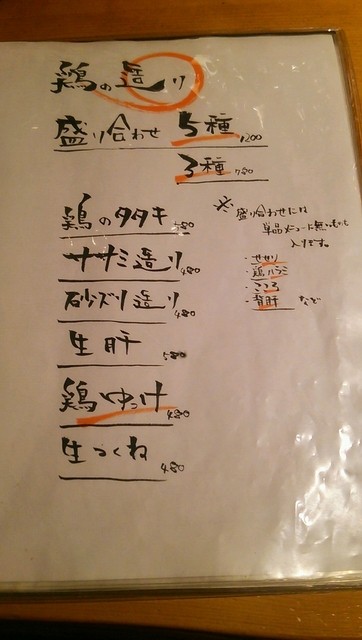 鶏の造り
盛り合わせ 5種 1200
3種 780
鶏のタタキ 580
ササミ造り 480
砂ズリ造り 480
生肝 580
鶏ゆっけ 480
生つくね 480
※盛り合わせには
単品メニューに無いものも
入ります。
・せせり
・鶏ハラミ
・こころ
・背肝 など